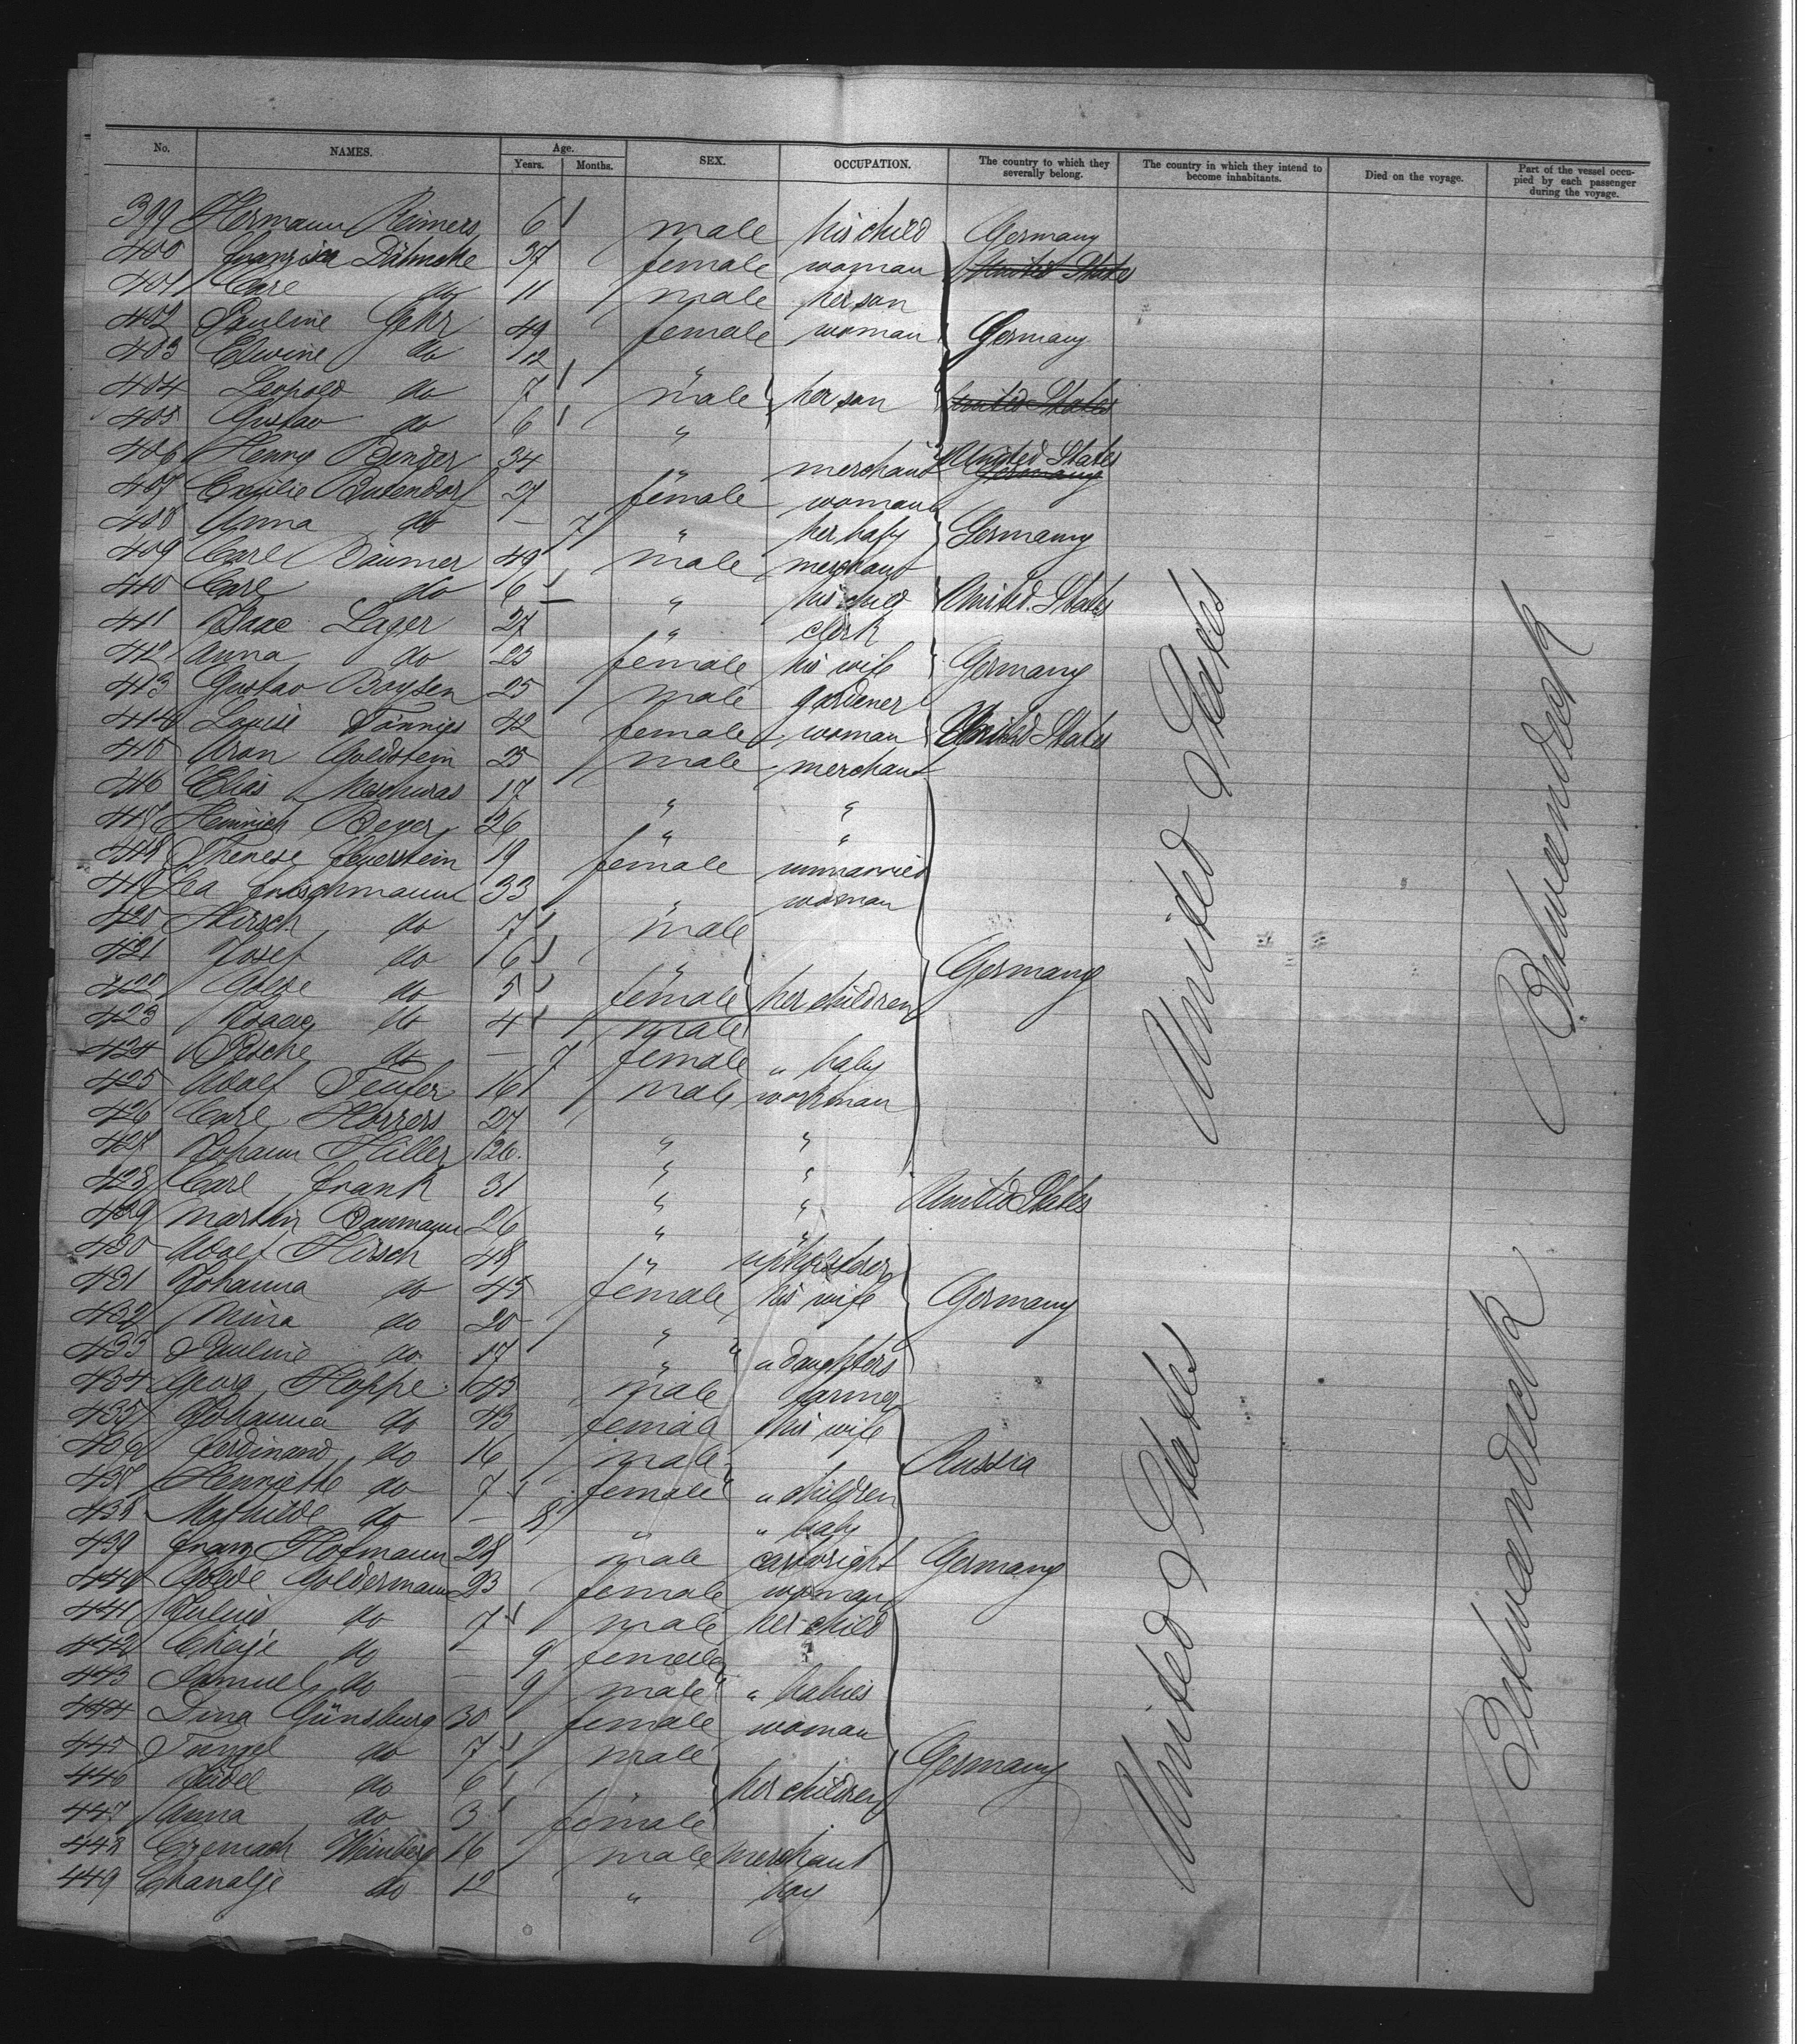 No. NAMES. Age. Years. Months. SEX. OCCUPATION. The country to which they severally belong. The country in which they intend to become inhabitants. Died on the voyage. Part of the vessel occupied by each passenger during the voyage.
399 Hermann Reimers 6 male his child Germany
400 Franziska Dähmcke 37 female woman United States
401 Carl do 11 male her son
402 Pauline Gehr 49 female woman Germany
403 Edwine do 12 "
404 Leopold do 7 male her son United States
405 Gustav do 6 "
406 Henry Bender 34 " merchant United States Germany
407 Cecilie Butendorf 27 female woman
408 Anna do — 7 " her baby Germany
409 Carl Bäumer 49 male merchant
410 Carl do 6 " his child United States
411 Isaac Lager 27 " clerk
412 Anna do 23 female his wife Germany
413 Gustav Boysen 25 male gardener
414 Louise Tönnies 42 female woman United States
415 Aron Goldstein 25 male merchant
416 Elias 17 " "
417 Heinrich Beyer 26 " "
418 Therese Feuerstein 19 female unmarried
419 Lea Frischmann 33 " woman
420 Hirsch do 7 male
421 Josef do 6 " Germany
422 do 5 female her children
423 Isaac do 4 male
424 Pesche do — 7 female " baby
425 Adolf Teufer 16 male workman
426 Carl Horrers 27 " "
427 Johann Hiller 26. " "
428 Carl Frank 31 " " United States
429 Martin Baumann 26 " "
430 Adolf Hirsch 48 " upholsterer
431 Johanna do 45 female his wife Germany
432 Mina do 20 "
433 Pauline do 17 " " daughters
434 Georg Hoppe 45 male farmer
435 Johanna do 43 female his wife
436 Ferdinand do 16 male Russia
437 Henriette do 7 female " children
438 Mathilde do — 8 " " baby
439 Franz Hofmann 28 male cartwright Germany
440 Goldermann 23 female woman
441 Julius do 7 male her child
442 Chaje do — 9 female
443 Samuel do — 9 male " babies
444 Dina Günsburg 30 female woman
445 do 7 male Germany
446 do 6 " her children
447 Anna do 3 female
448 Czemach Weinberg 16 male merchant
449 Chanalje do 12 " boy
United States
United States
Betweendeck
Betweendeck